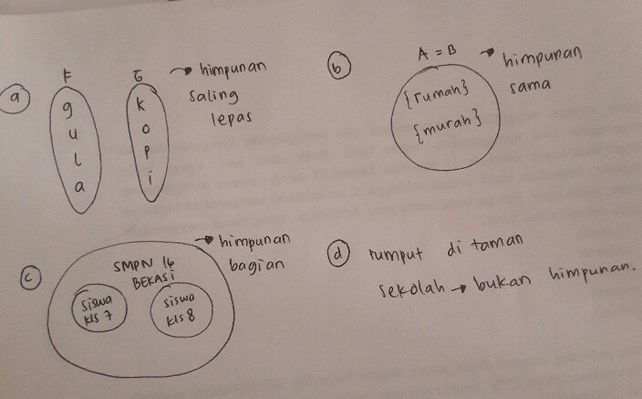 a
F
g
u
l
a
G
k
o
p
i
→ himpunan
saling
lepas
b
A = B
{rumah}
{murah}
→ himpunan
sama
c
SMPN 16
BEKASI
siswa
kls 7
siswa
kls 8
→ himpunan
bagian
d
rumput di taman
sekolah → bukan himpunan.